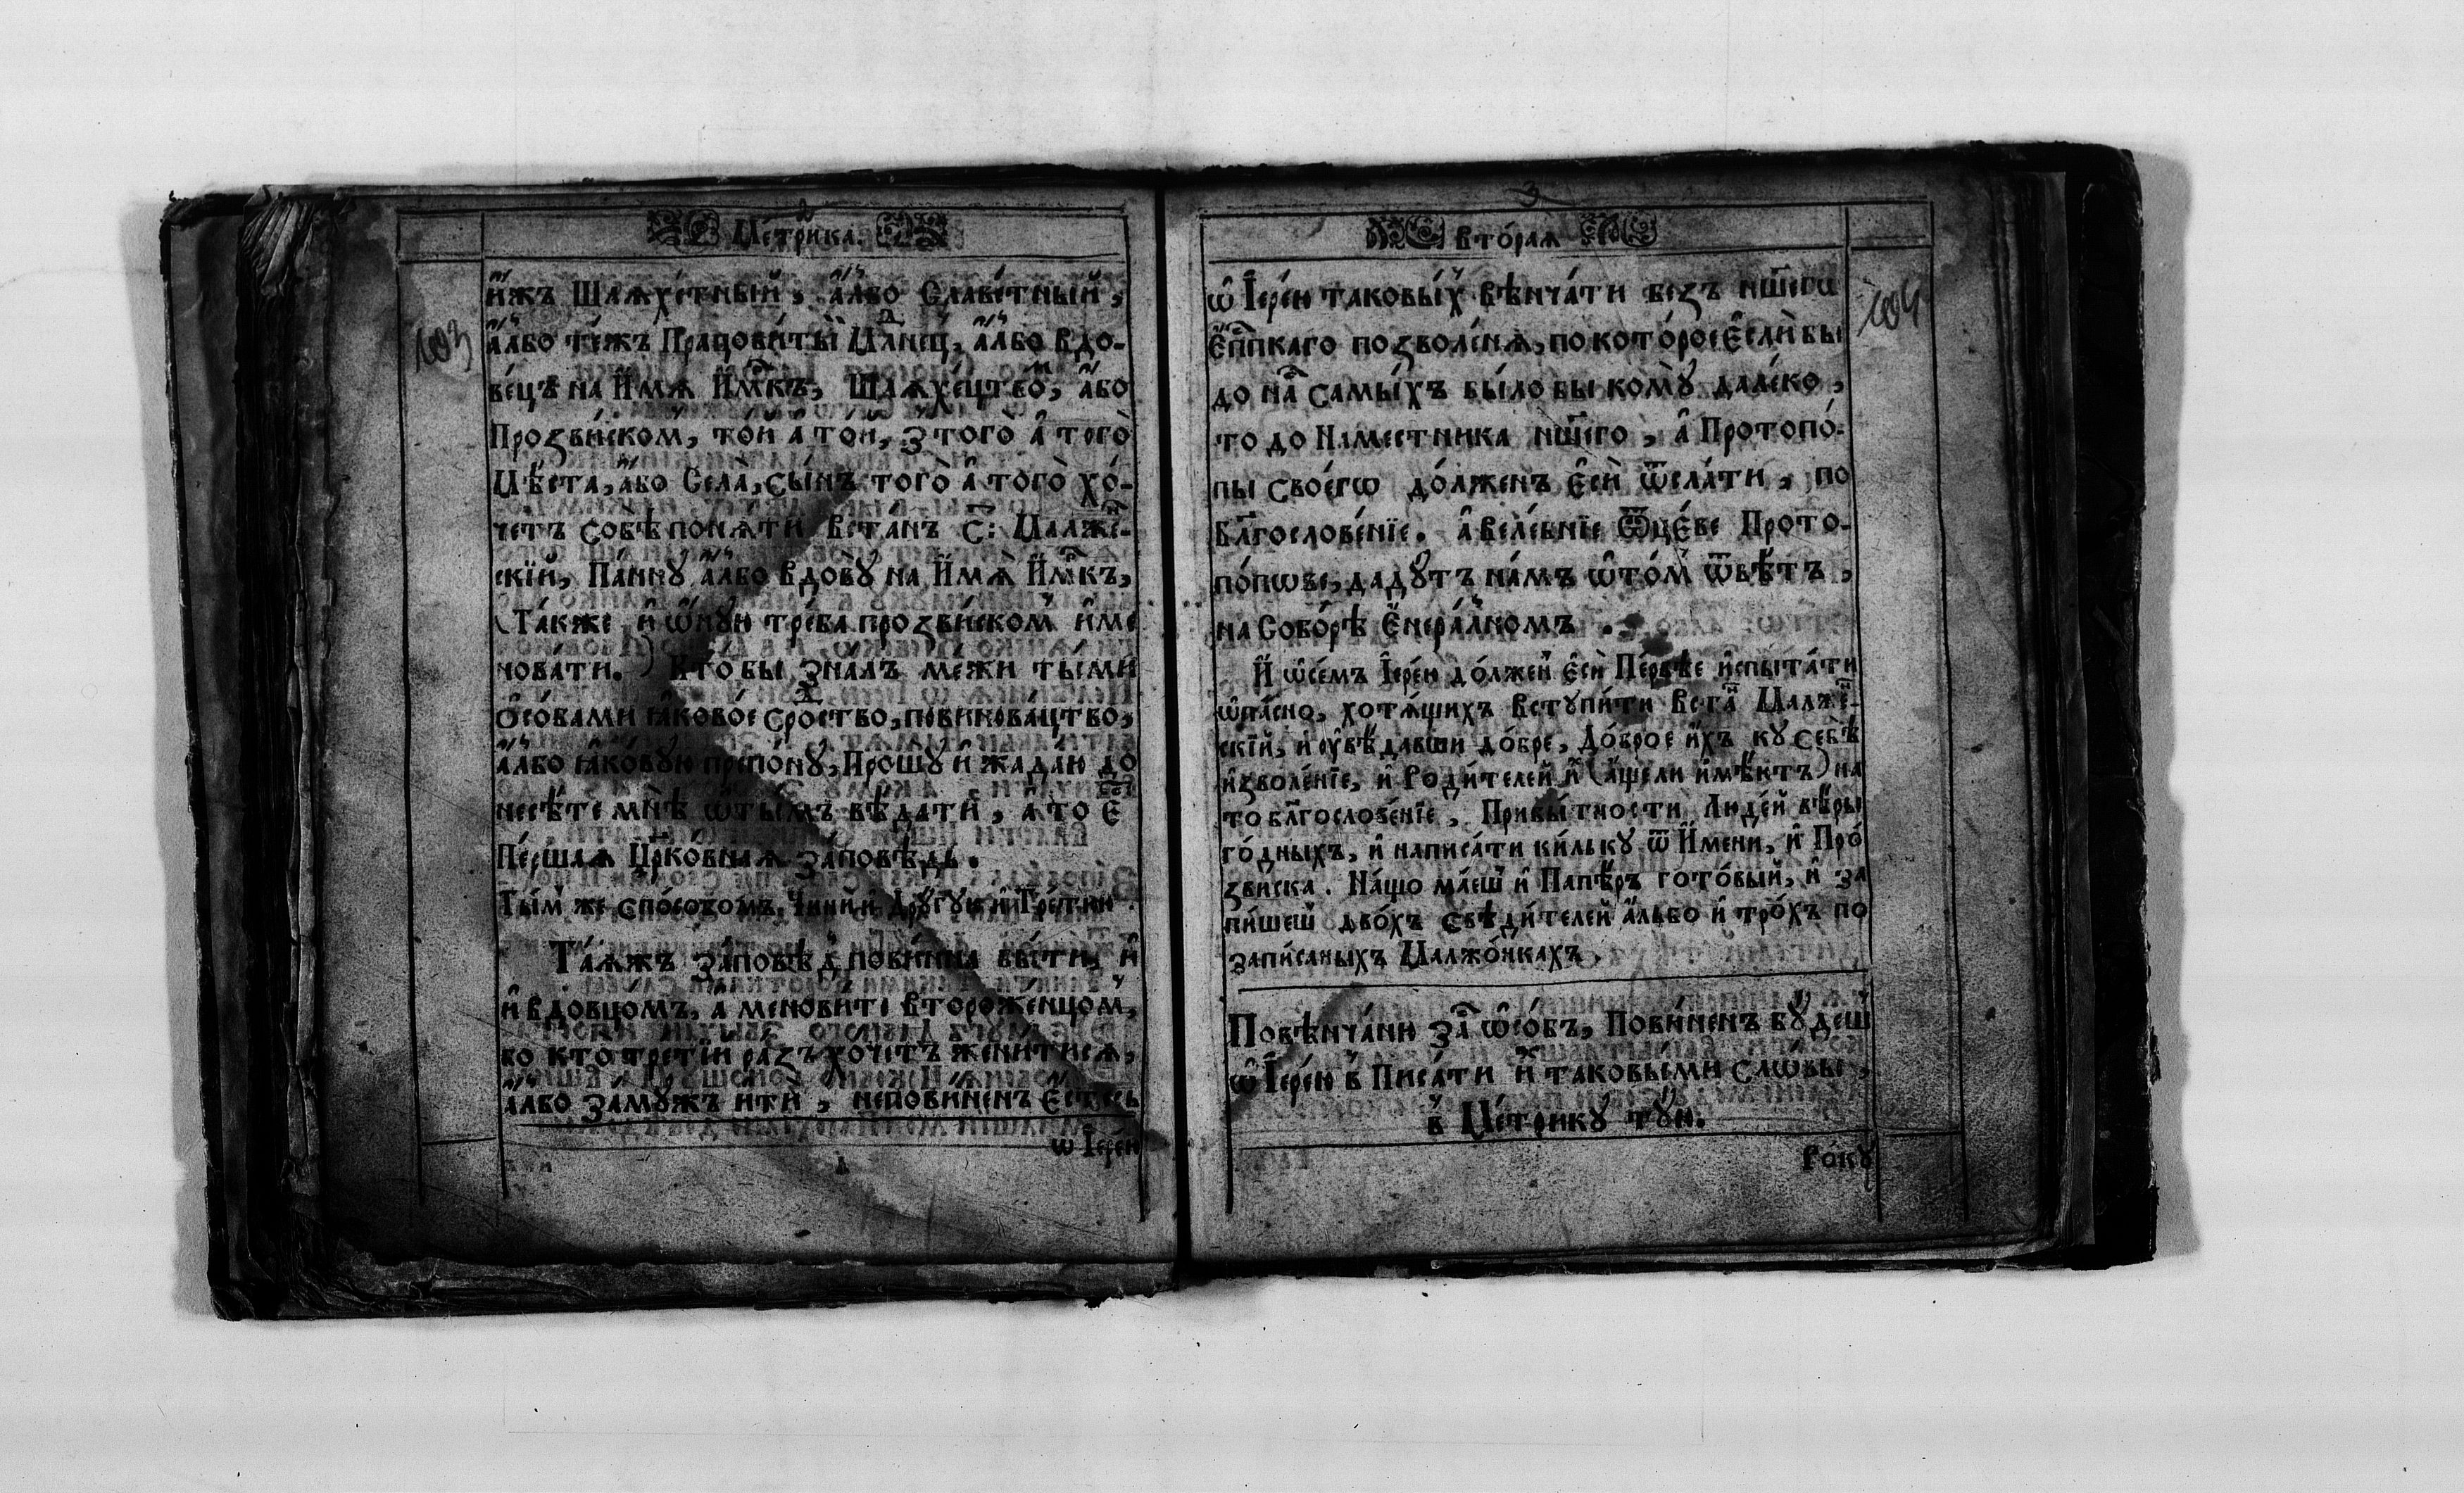 2
Ме́трика.
и҆́жъ Шлѧхе́тный, а҆́лбо Славе́тный,
а҆́лбо те́жъ Працови́тый Млⷣнецъ, а҆́лбо Вдо-
ве́цъ на И҆́мѧ И҆́мⷬкъ, Шлѧхе́цтвоⷨ, а҆́бо
Прозви́скомъ, то́й а то́й, з того̀ а҆ того̀
Мѣ́ста, а҆́бо Села̀, Сы́нъ того̀ а҆ того̀ хо́-
четъ собѣ̀ понѧ́ти встанъ С: Малже́-
скїй, Па́ннꙋ а҆́лбо Вдовꙋ̀ на И҆́мѧ И҆́мⷬкъ,
(Та́кже и҆ ѡ҆́нꙋю тре́ба прозви́скомъ и҆ме
нова́ти.) Кто бы зна́лъ ме́жи ты́ми
О҆со́бами ꙗ҆ково́е сроⷣство, повинова́цтво,
а҆́лбо ꙗ҆ковꙋ́ю препо́нꙋ, Прошꙋ̀ и҆ жада́ю до
несѣ́те мнѣ̀ ѡ҆ ты́мъ вѣ́дати, а҆ то є҆стⷭ
Пе́ршаѧ Црⷪ҇ко́внаѧ за́повѣдь.
Ты́м же спо́собомъ, Чини́ и҆ Дрꙋ́гꙋю и҆ Тре́тюю.
Та́ѧжъ за́повѣдъ пови́нна бы́ти, и҆
и҆ вдовцо́мъ, а меновите второже́нцомъ,
бо кто тре́тїй ра́зъ хо́четъ жени́тисѧ,
а҆́лбо за́мꙋжъ итѝ, непови́ненъ Є҆стесь
ѡ Їере́ю
103
3
Вто́раѧ
ѡ҆ Їере́ю таковы́хъ вѣнча́ти безъ нш҃егѡ
Є҆пⷭпкаго позволе́нѧ, по кото́рое Є҆сли бы
до на́съ самы́хъ бы́ло бы комꙋ̀ дале́ко,
то до Наместника нш҃его, а҆ Протопо́-
пы своегѡ до́лженъ Є҆сѝ ѿсла́ти, по
блгⷭ҇ослове́нїе. а҆ веле́бнїе Ѿце́ве Прото-
по́пѡве, даду́тъ на́мъ ѡ҆ то́мъ ѿвѣ́тъ,
на Собо́рѣ Є҆нера́лномъ.
И҆ ѡ҆ се́мъ Їере́ю до́лженъ Є҆сѝ Пе́рвѣе и҆спыта́ти
ѡ҆па́сно, хотѧ́щихъ вступи́ти встаⷩ Малже́-
скїй, и оувѣ́давши до́бре, До́брое и҆́хъ кꙋ Себѣ̀
изволе́нїе, и҆ Роди́телей иⷯ (а҆́щели и҆мѣ́ютъ) на
то блгⷭ҇ослове́нїе, Прибы́тности Люде́й вѣ́ры
го́дныхъ, и҆ написа́ти ки́лькꙋ ѿ И҆́мени, и҆ Про́
звиска. На́що ма́ешъ и҆ Папѣ́ръ гото́вый, и҆ за
пи́шешъ дво́хъ свѣди́телей а҆́льбо и҆ тро́хъ по
запи́саныхъ Малжо́нкахъ.
Повѣнча́ню заⷭ ѡ҆со́бъ, Пови́ненъ бꙋ́дешъ
ѡ҆ Їере́ю в Писа́ти иⷯ таковы́ми сло́вы,
в Ме́трикꙋ тꙋ́ю.
Ро́кꙋ
104